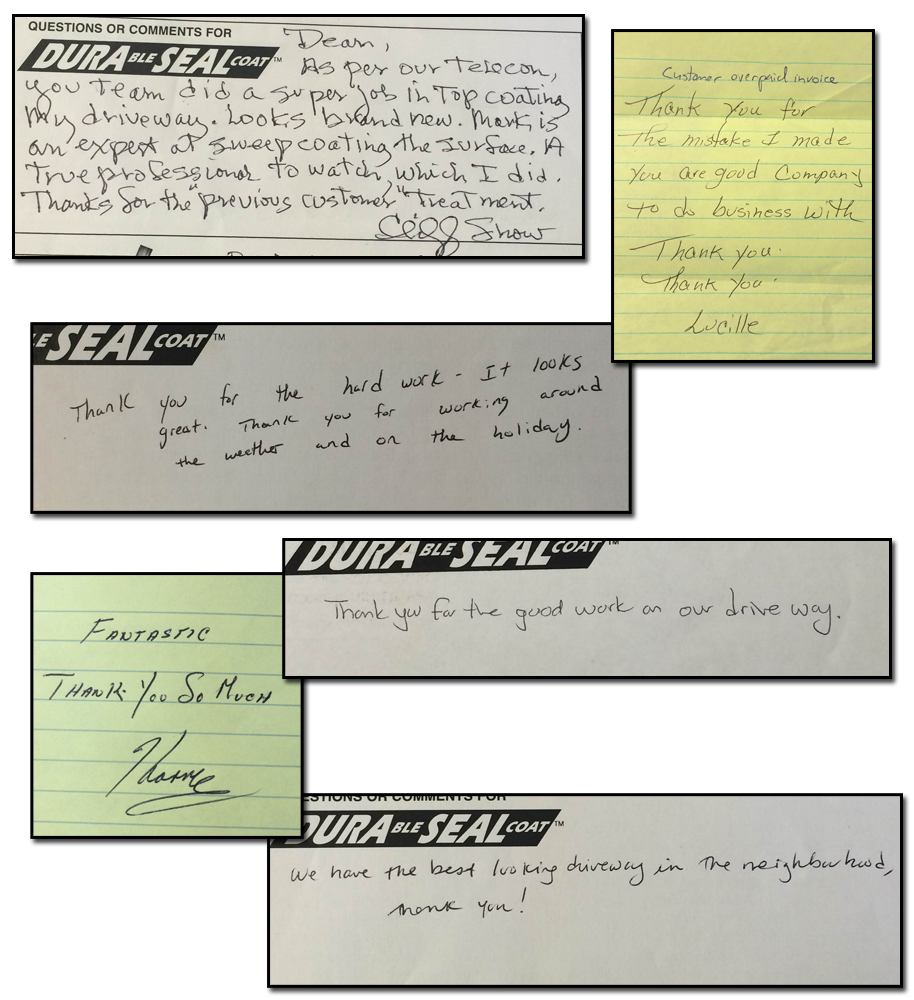 QUESTIONS OR COMMENTS FOR
DURABLE SEALCOAT™
Dean,
As per our Telecon,
you Team did a super job in Top coating
My driveway. Looks brand new. Mark is
an expert at sweep coating the surface. A
True professional to watch, which I did.
Thanks for the "previous customer" Treatment.
Cliff Snow
Customer overpaid invoice
Thank you for
The mistake I made
You are good Company
to do business with
Thank you.
Thank you.
Lucille
LE SEALCOAT™
Thank you for the hard work - It looks
great. Thank you for working around
the weather and on the holiday.
DURABLE SEALCOAT™
Thank you for the good work on our drive way.
FANTASTIC
THANK YOU SO MUCH
ESTIONS OR COMMENTS FOR
DURABLE SEALCOAT™
We have the best looking driveway in the neighborhood,
thank you!